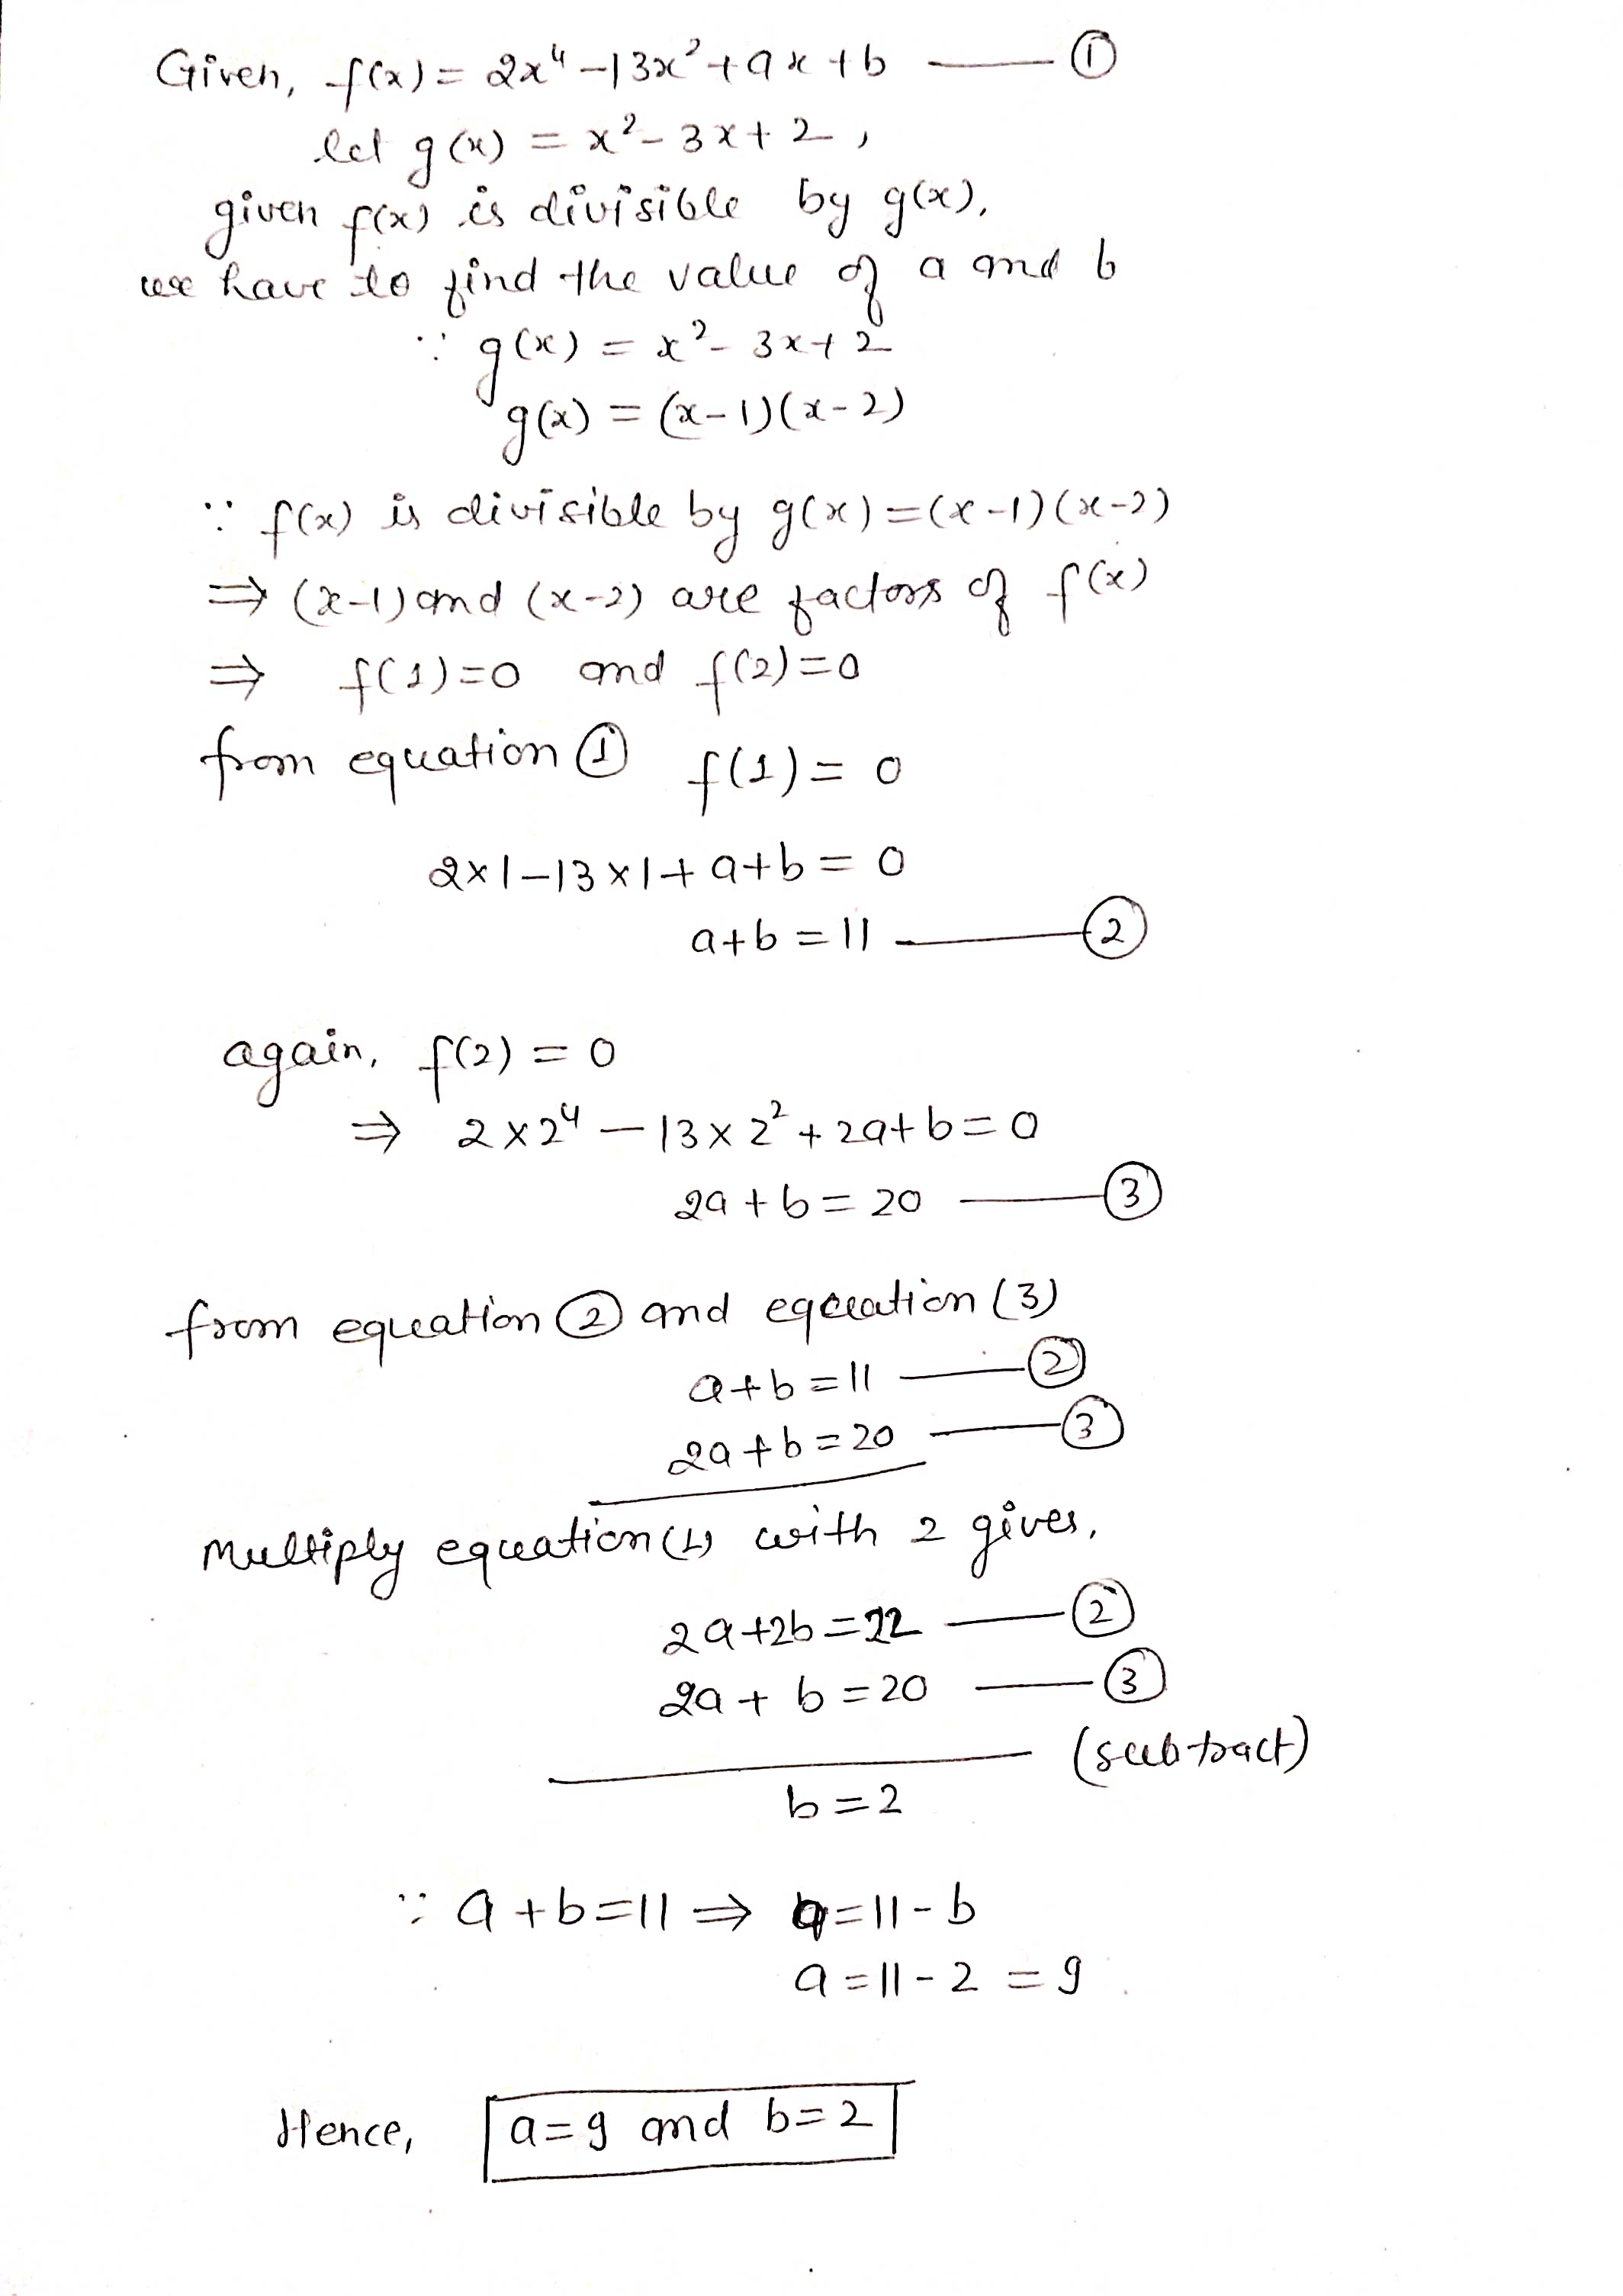 Given, f(x) = 2x⁴ -13x² + ax + b —— ①
let g(x) = x² - 3x + 2,
given f(x) is divisible by g(x),
we have to find the value of a and b
∵ g(x) = x² - 3x + 2
g(x) = (x-1)(x-2)
∵ f(x) is divisible by g(x) = (x-1)(x-2)
⇒ (x-1) and (x-2) are factors of f(x)
⇒ f(1)=0 and f(2)=0
from equation ① f(1) = 0
2×1-13×1+a+b = 0
a+b = 11 —— ②
again, f(2) = 0
⇒ 2×2⁴ - 13×2² + 2a+b = 0
2a+b = 20 —— ③
from equation ② and equation (3)
a+b = 11 —— ②
2a+b = 20 —— ③
Multiply equation (1) with 2 gives,
2a+2b = 22 —— ②
2a+b = 20 —— ③
(subtract)
b = 2
∵ a+b=11 ⇒ a=11-b
a = 11-2 = 9
Hence, a=9 and b=2